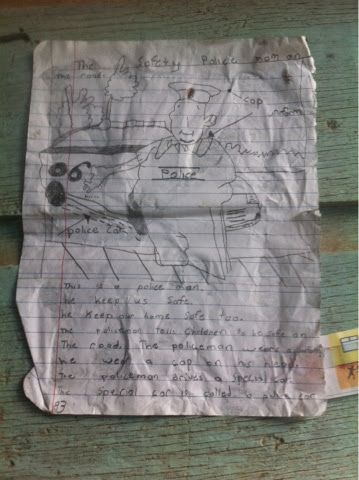 The Safety Police man on
the road.
cap
Police
police car
This is a police man.
He keep us safe.
He keep our home safe too.
The policeman tells children to be safe on
The road. The policeman wears
he wear a cap on his head.
The policeman drives a special car.
The special car is called a police car
93